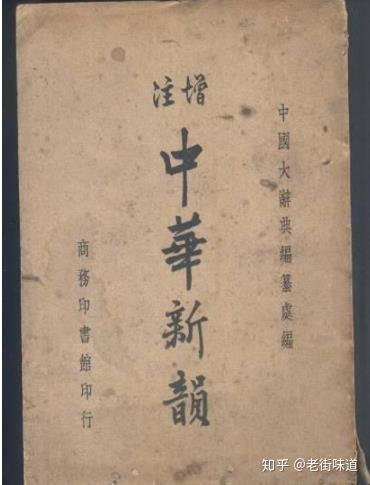 中國大辭典編纂處編
增註
中華新韻
商務印書館印行
知乎 @老街味道